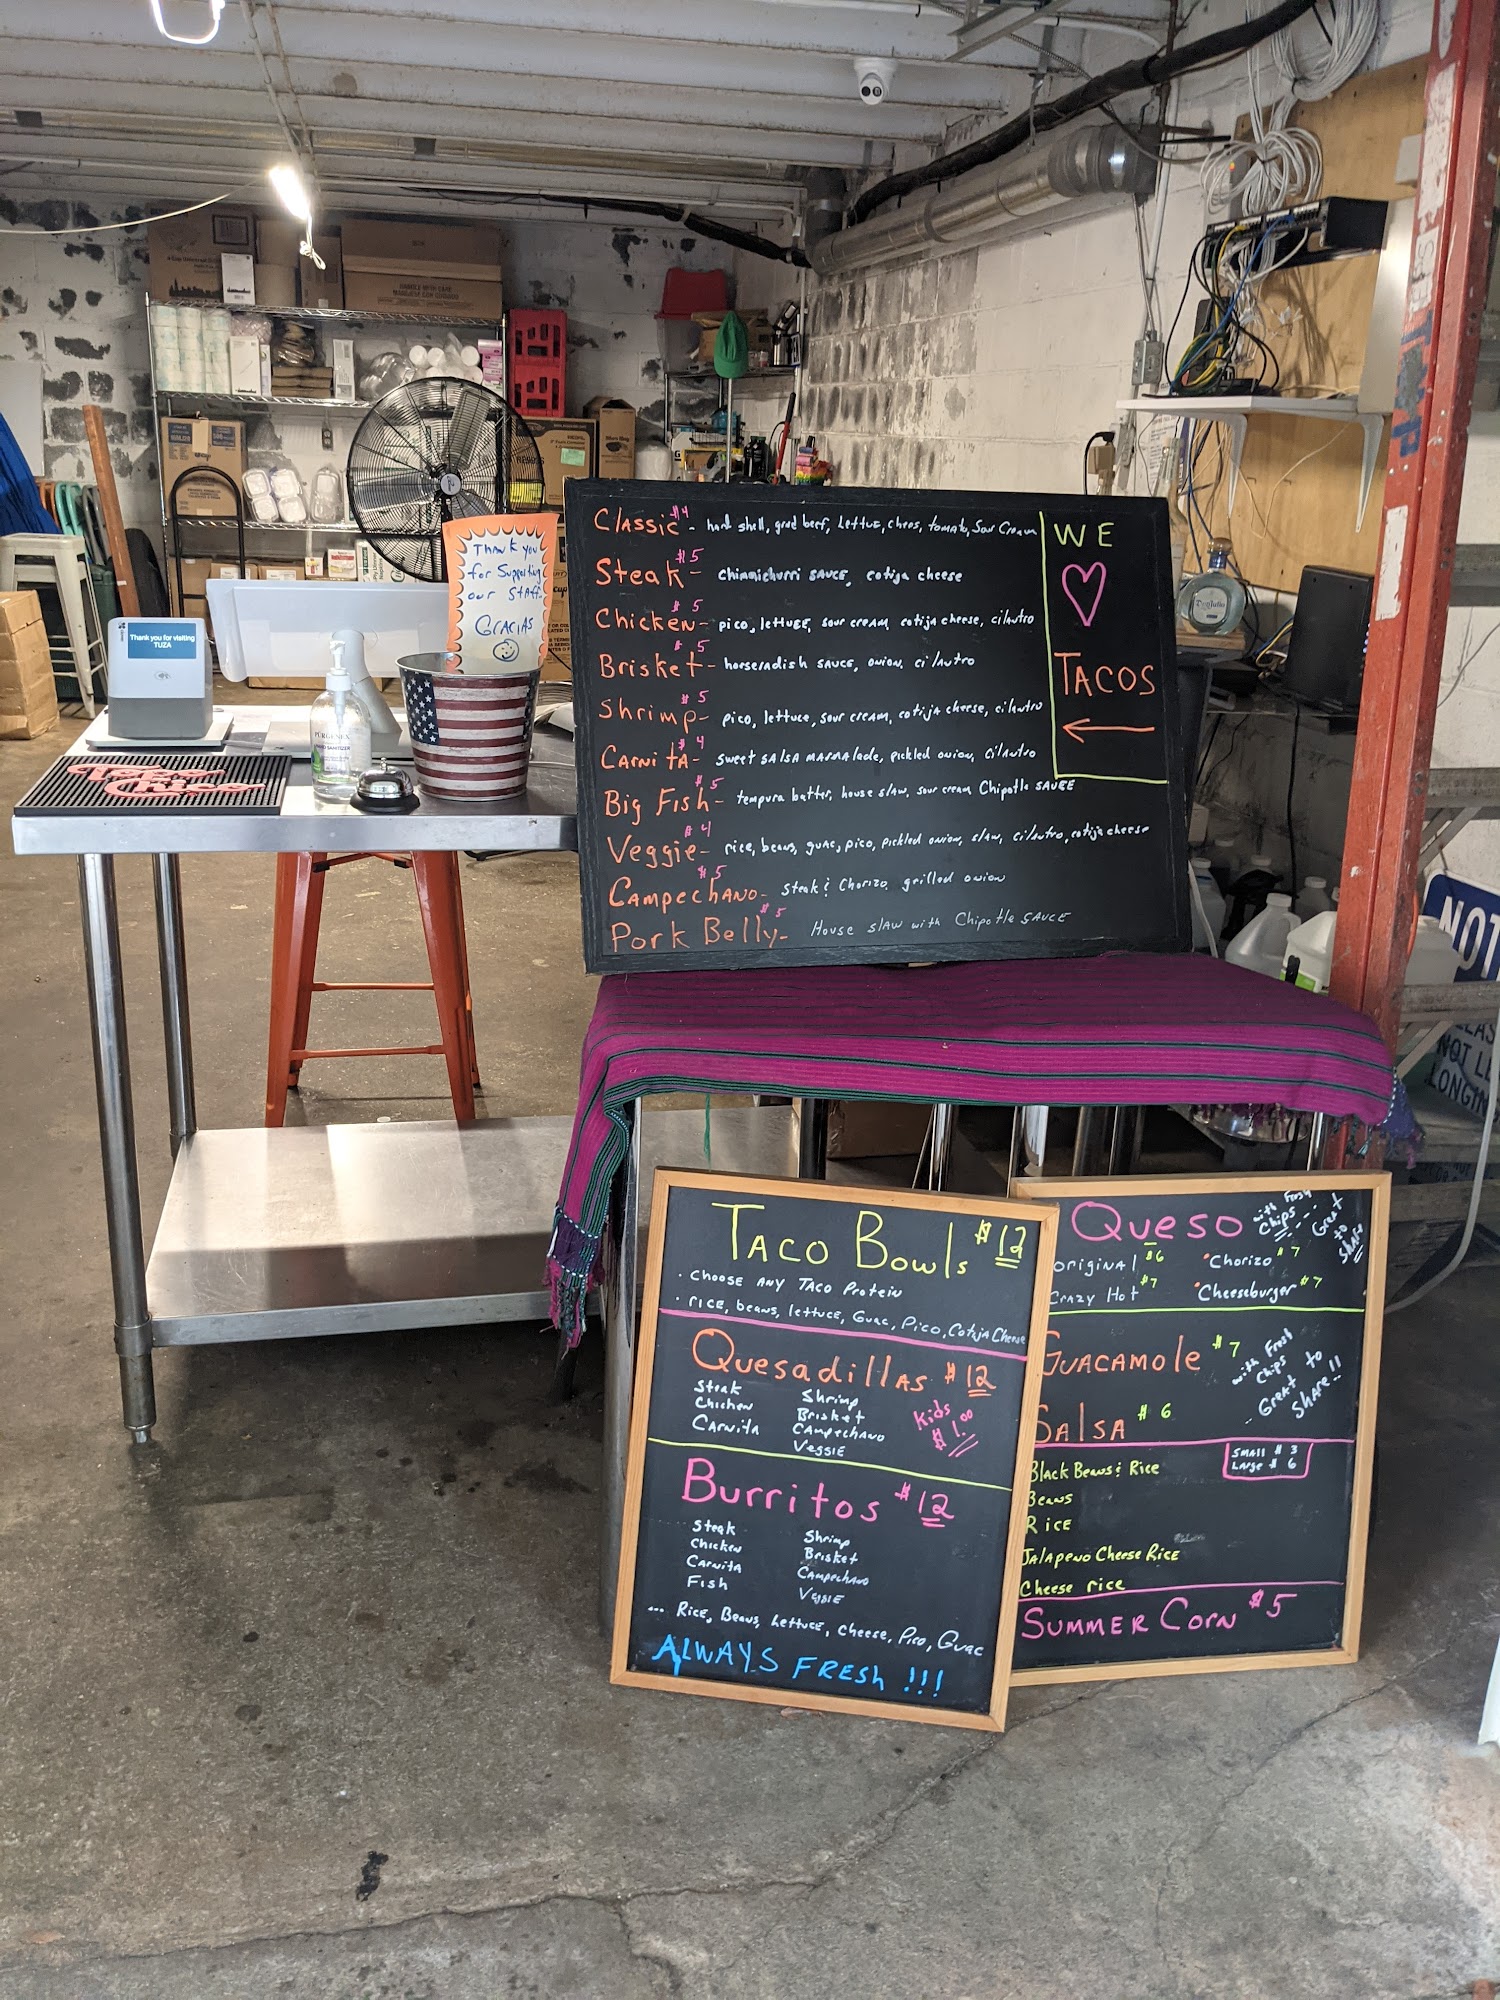 Thank you for visiting
TUZA
Topo
Chico
Thank you
for Supporting
our Staff
GRACIAS
PÜRGENEX
Classic $4 - hard shell, grnd beef, Lettuc, chees, tomato, Sour Cream
Steak $5 - chimmichurri SAUCE, cotija cheese
Chicken $5 - pico, lettuge, sour cream, cotija cheese, cilantro
Brisket $5 - horseradish SAUCE, onion, cilantro
Shrimp $5 - pico, lettuce, sour cream, cotija cheese, cilantro
Carnita $4 - sweet salsa marmalade, pickled onion, cilantro
Big Fish $5 - tempura batter, house slaw, sour cream Chipotle SAUCE
Veggie $4 - rice, beans, guac, pico, pickled onion, slaw, cilantro, cotija cheese
Campechano $5 - Steak & Chorizo grilled onion
Pork Belly $5 - House slaw with Chipotle SAUCE
WE
TACOS
Don Julio
TACO Bowls $12
· CHOOSE ANY TACO Protein
· rice, beans, lettuce, Guac, Pico, Cotija Cheese
Quesadillas $12
Steak Shrimp
Chicken Brisket
Carnita CAMpechano
Veggie
Kids
$1.00
Burritos $12
Steak Shrimp
Chicken Brisket
Carnita Campechano
Fish Veggie
... Rice, Beans, Lettuce, Cheese, Pico, Guac
ALWAYS FRESH !!!
Queso
with Fresh
Chips ...
Great
to
Share
original $6 Chorizo $7
Crazy Hot $7 Cheeseburger $7
Guacamole $7
with Fresh
Chips
... Great to
Share!!
Salsa $6
Small $3
Large $6
Black Beans & Rice
Beans
Rice
Jalapeno Cheese Rice
Cheese rice
SUMMER CORN $5
NOT
NOT